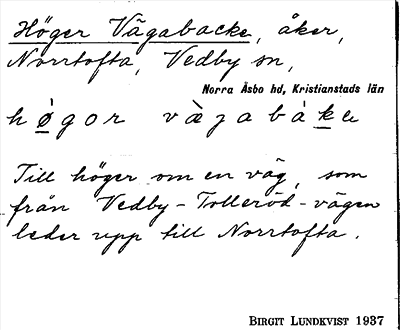 Höger Vägabacke, åker,
Norrtofta, Vedby sn,
Norra Åsbo hd, Kristianstads län
høgor vàgabàke
Till höger om en väg, som
från Vedby-Tolleröd-vägen
leder upp till Norrtofta.
BIRGIT LUNDKVIST 1937